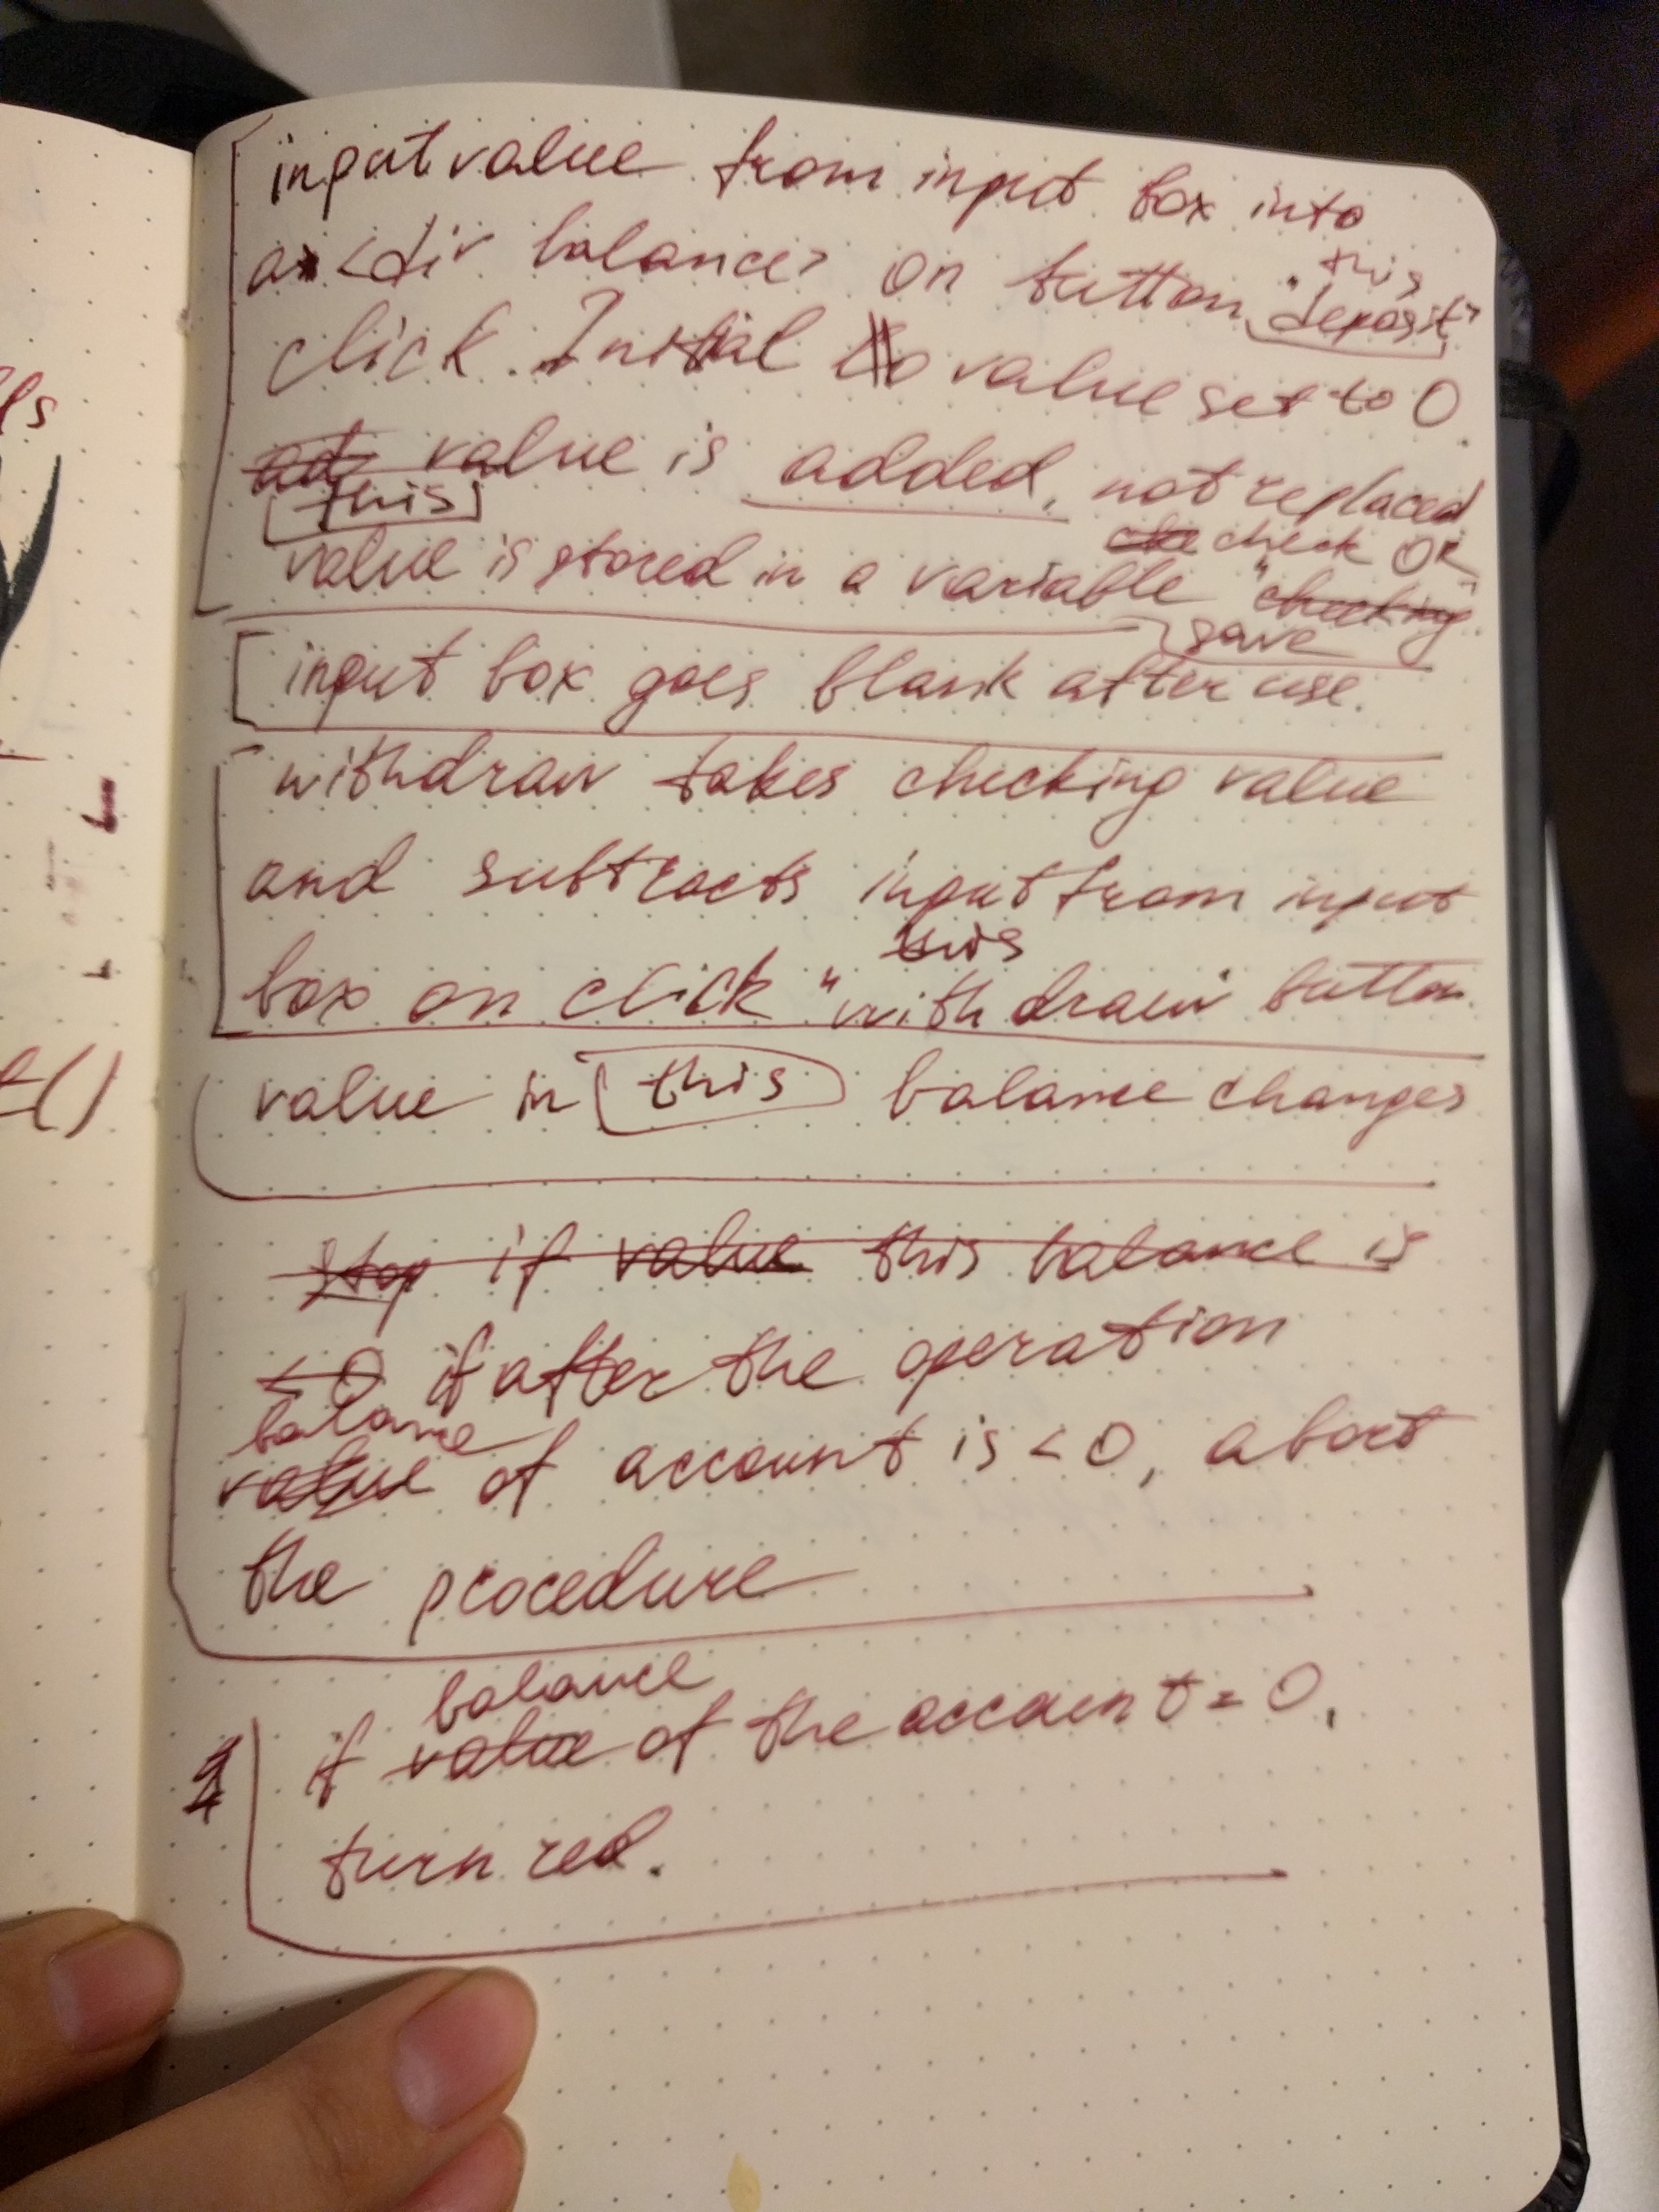 input value from input box into
a <div balance> on button "this
deposit"
click. Initial to value set to 0.
ad value is added, not replaced
[this]
che check OR
value is stored in a variable "checking"
save
input box goes blank after use.
withdraw takes checking value
and subtracts input from input
this
box on click "withdraw button
value in this balance changes
Stop if value this balance is
<0 if after the operation
balance
value of account is <0, abort
the procedure
balance
if value of the account = 0,
turn red.
ls
t()